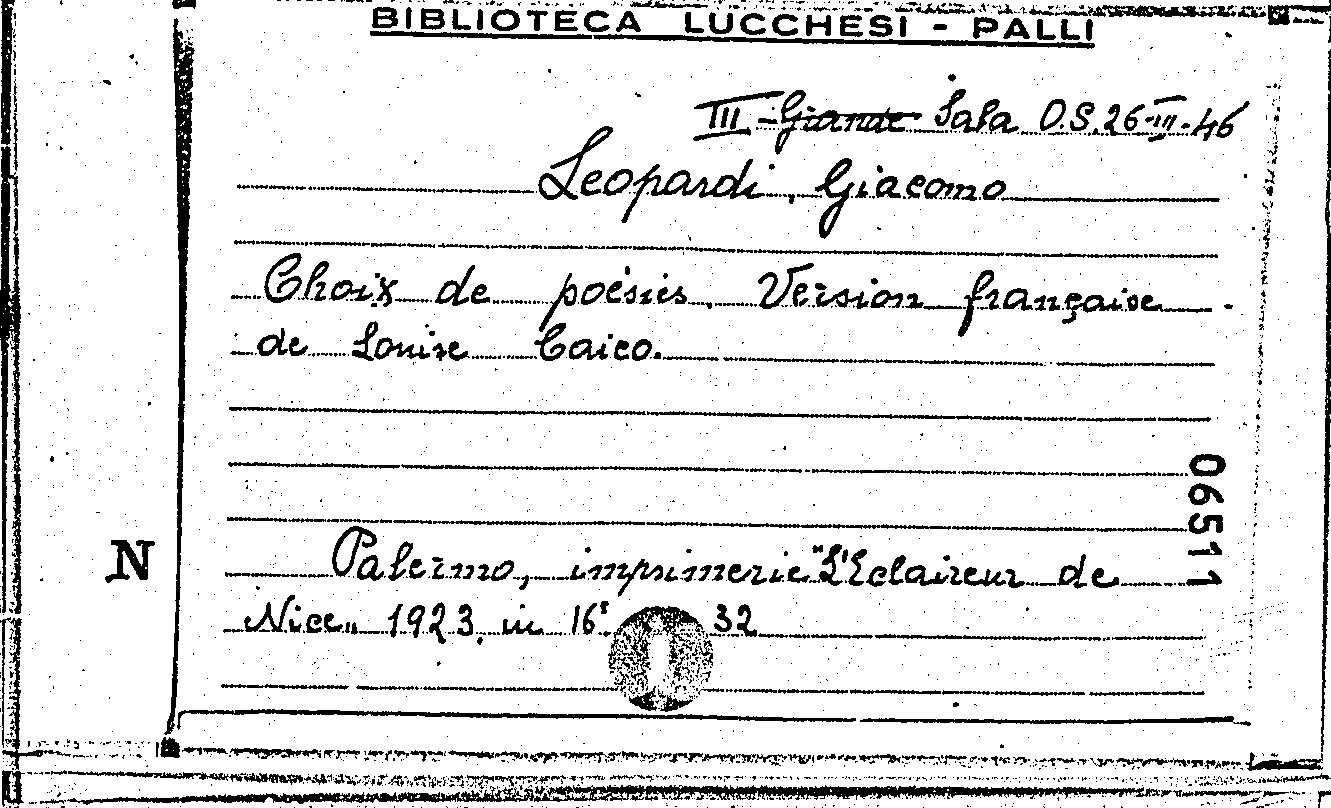 BIBLIOTECA LUCCHESI - PALLI
III - Grande Sala O.S. 26-III-46
Leopardi, Giacomo
Choix de poésies. Version française
de Louise Caico.
Palermo, imprimerie "L'Eclaireur de
Nice„ 1923, in 16° 32
N
06511